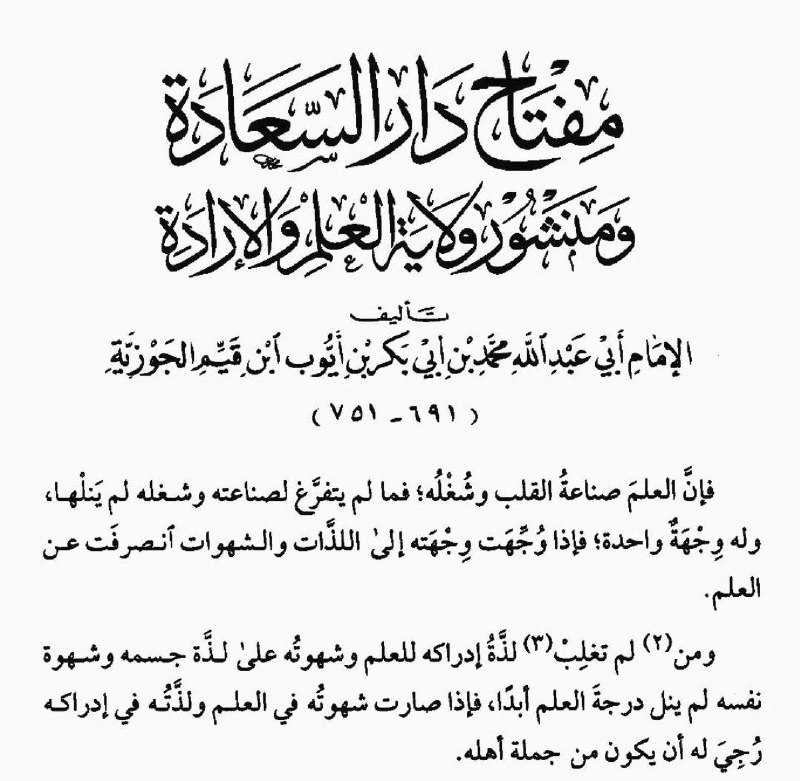 مِفْتَاح دَار السَّعَادَة
وَمَنْشُور وِلَايَة العِلْمِ وَالإِرَادَة
تَأليف
الإمَامِ أَبِي عَبْدِ اللَّهِ مُحَمَّدِ بْنِ أَبِي بَكْرِ بْنِ أَيُّوب ٱبْنِ قَيِّمِ الجَوْزِيَّةِ
(٦٩١ - ٧٥١)
فإنَّ العلمَ صناعةُ القلب وشُغْلُه؛ فما لم يتفرَّغ لصناعته وشغله لم يَنلْها،
وله وِجْهَةٌ واحدة؛ فإذا وُجِّهَت وِجْهَته إلىٰ اللذَّات والشهوات ٱنصرفَت عن
العلم.
ومن(٢) لم تغلِبْ(٣) لذَّةُ إدراكه للعلم وشهوتُه علىٰ لذَّة جسمه وشهوة
نفسه لم ينل درجةَ العلم أبدًا، فإذا صارت شهوتُه في العلم ولذَّتُه في إدراكه
رُجِيَ له أن يكون من جملة أهله.